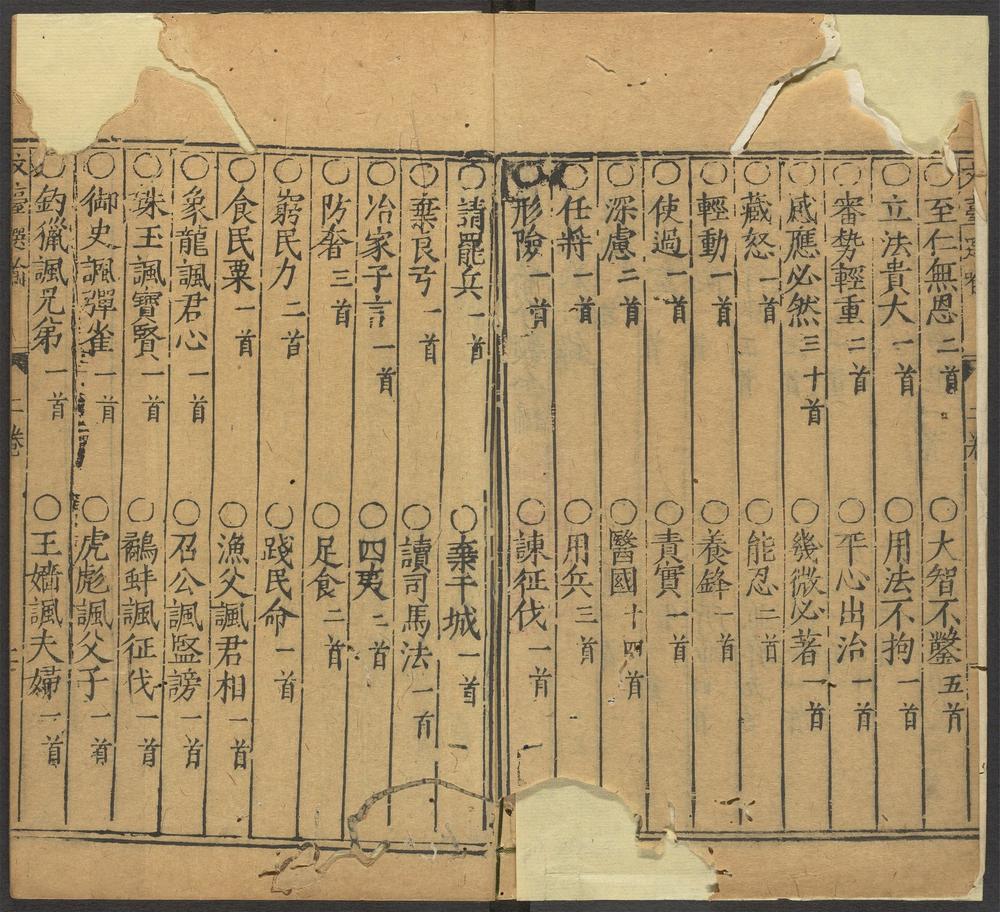 至仁無恩二首 大智不鑿五首
立法貴大一首 用法不拘一首
審勢輕重二首 平心出治一首
感應必然三十首 幾微必著一首
藏怒一首 能忍二首
輕動一首 養鋒一首
使過一首 責實一首
深慮二首 醫國十四首
任將一首 用兵三首
形險一首 諫征伐一首
請罷兵一首 棄干城一首
棄良弓一首 讀司馬法一首
冶家子言一首 四夷二首
防奢三首 足食二首
窮民力二首 踐民命一首
食民粟一首 漁父諷君相一首
象龍諷君心一首 召公諷監謗一首
珠玉諷寶賢一首 鷸蚌諷征伐一首
御史諷彈雀一首 虎彪諷父子一首
釣獵諷兄弟一首 王嬙諷夫婦一首
二卷